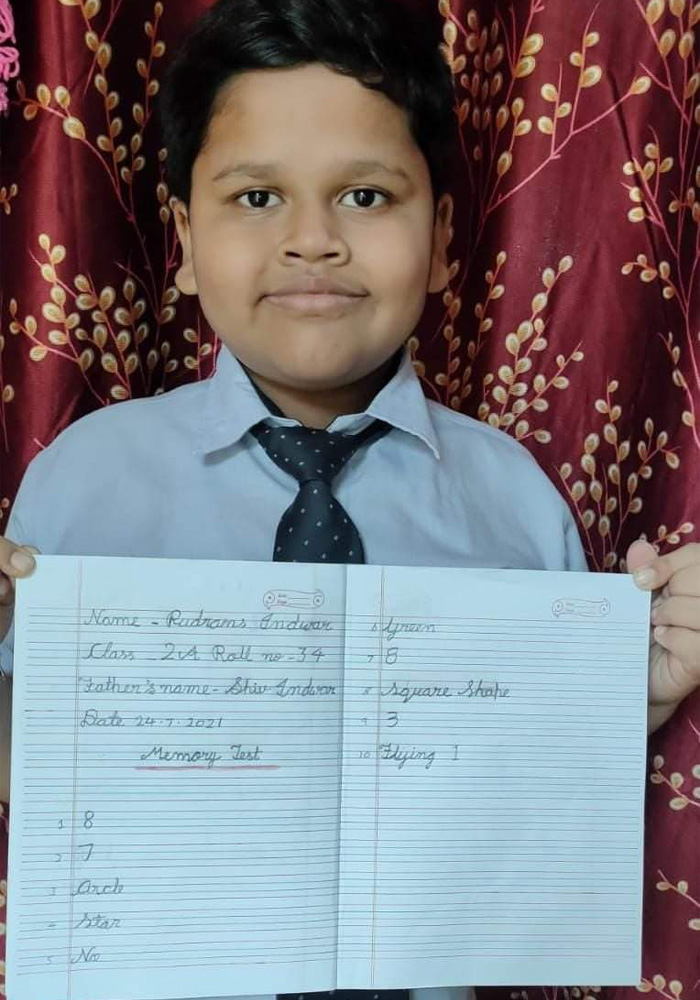 Name - Rudrans Indwar
Class - 2A Roll no - 34
Father's name - Shiv Indwar
Date 24.7.2021
Memory Test
1 8
2 7
3 Arch
4 Star
5 No
6 Green
7 8
8 Square Shape
9 3
10 Flying 1